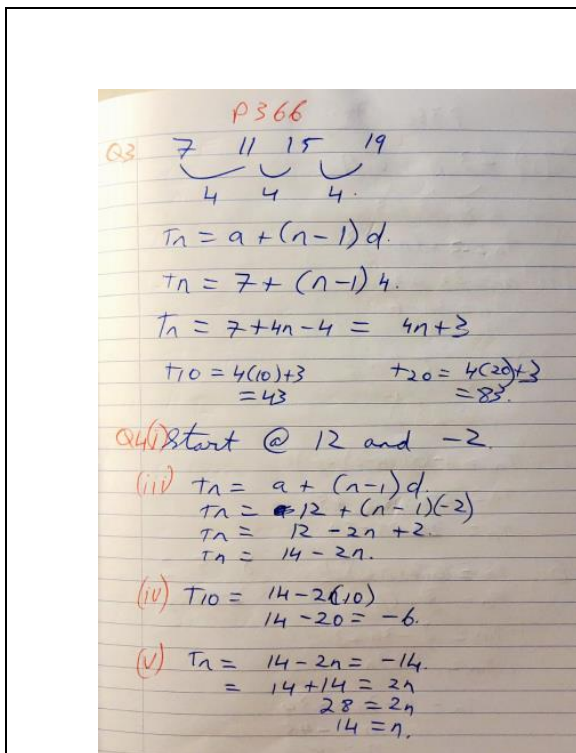 P366
Q3 7 11 15 19
4 4 4.
Tn = a + (n-1) d.
tn = 7 + (n-1) 4.
Tn = 7 + 4n - 4 = 4n + 3
t10 = 4(10)+3 t20 = 4(20)+3
= 43 = 83.
Q4(i) Start @ 12 and -2.
(iii) tn = a + (n-1) d.
tn = 12 + (n-1)(-2)
tn = 12 - 2n + 2.
Tn = 14 - 2n.
(iv) T10 = 14 - 2(10)
14 - 20 = -6.
(v) Tn = 14 - 2n = -14.
= 14 + 14 = 2n
28 = 2n
14 = n.